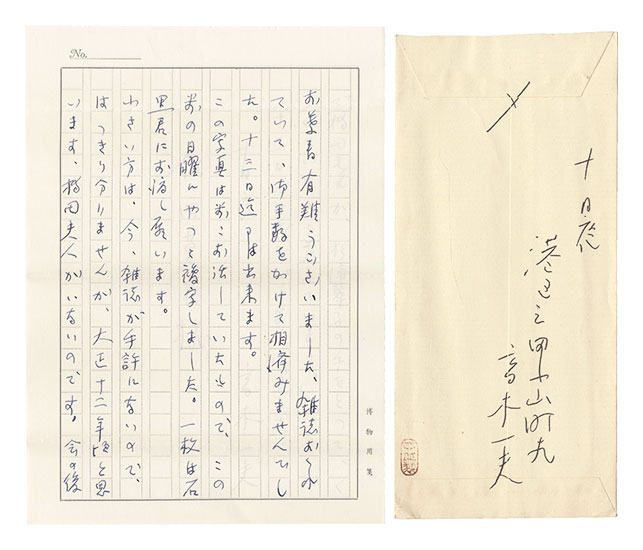 No.
お葉書有難うございました、雑誌おくれ
ていて、御手数をかけて相済みませんでし
た。十三日迄には出来ます。
この写真は前にお話していたもので、この
前の日曜にやっと複写しました。一枚は石
黒君にお渡し願います。
わさい方は、今、雑誌が手許にないので、
はっきり分りませんが、大正十二年頃と思
います、橋田夫人がいないのです。会の後
博物用箋
十日夜
港区三田小山町九
高木一夫